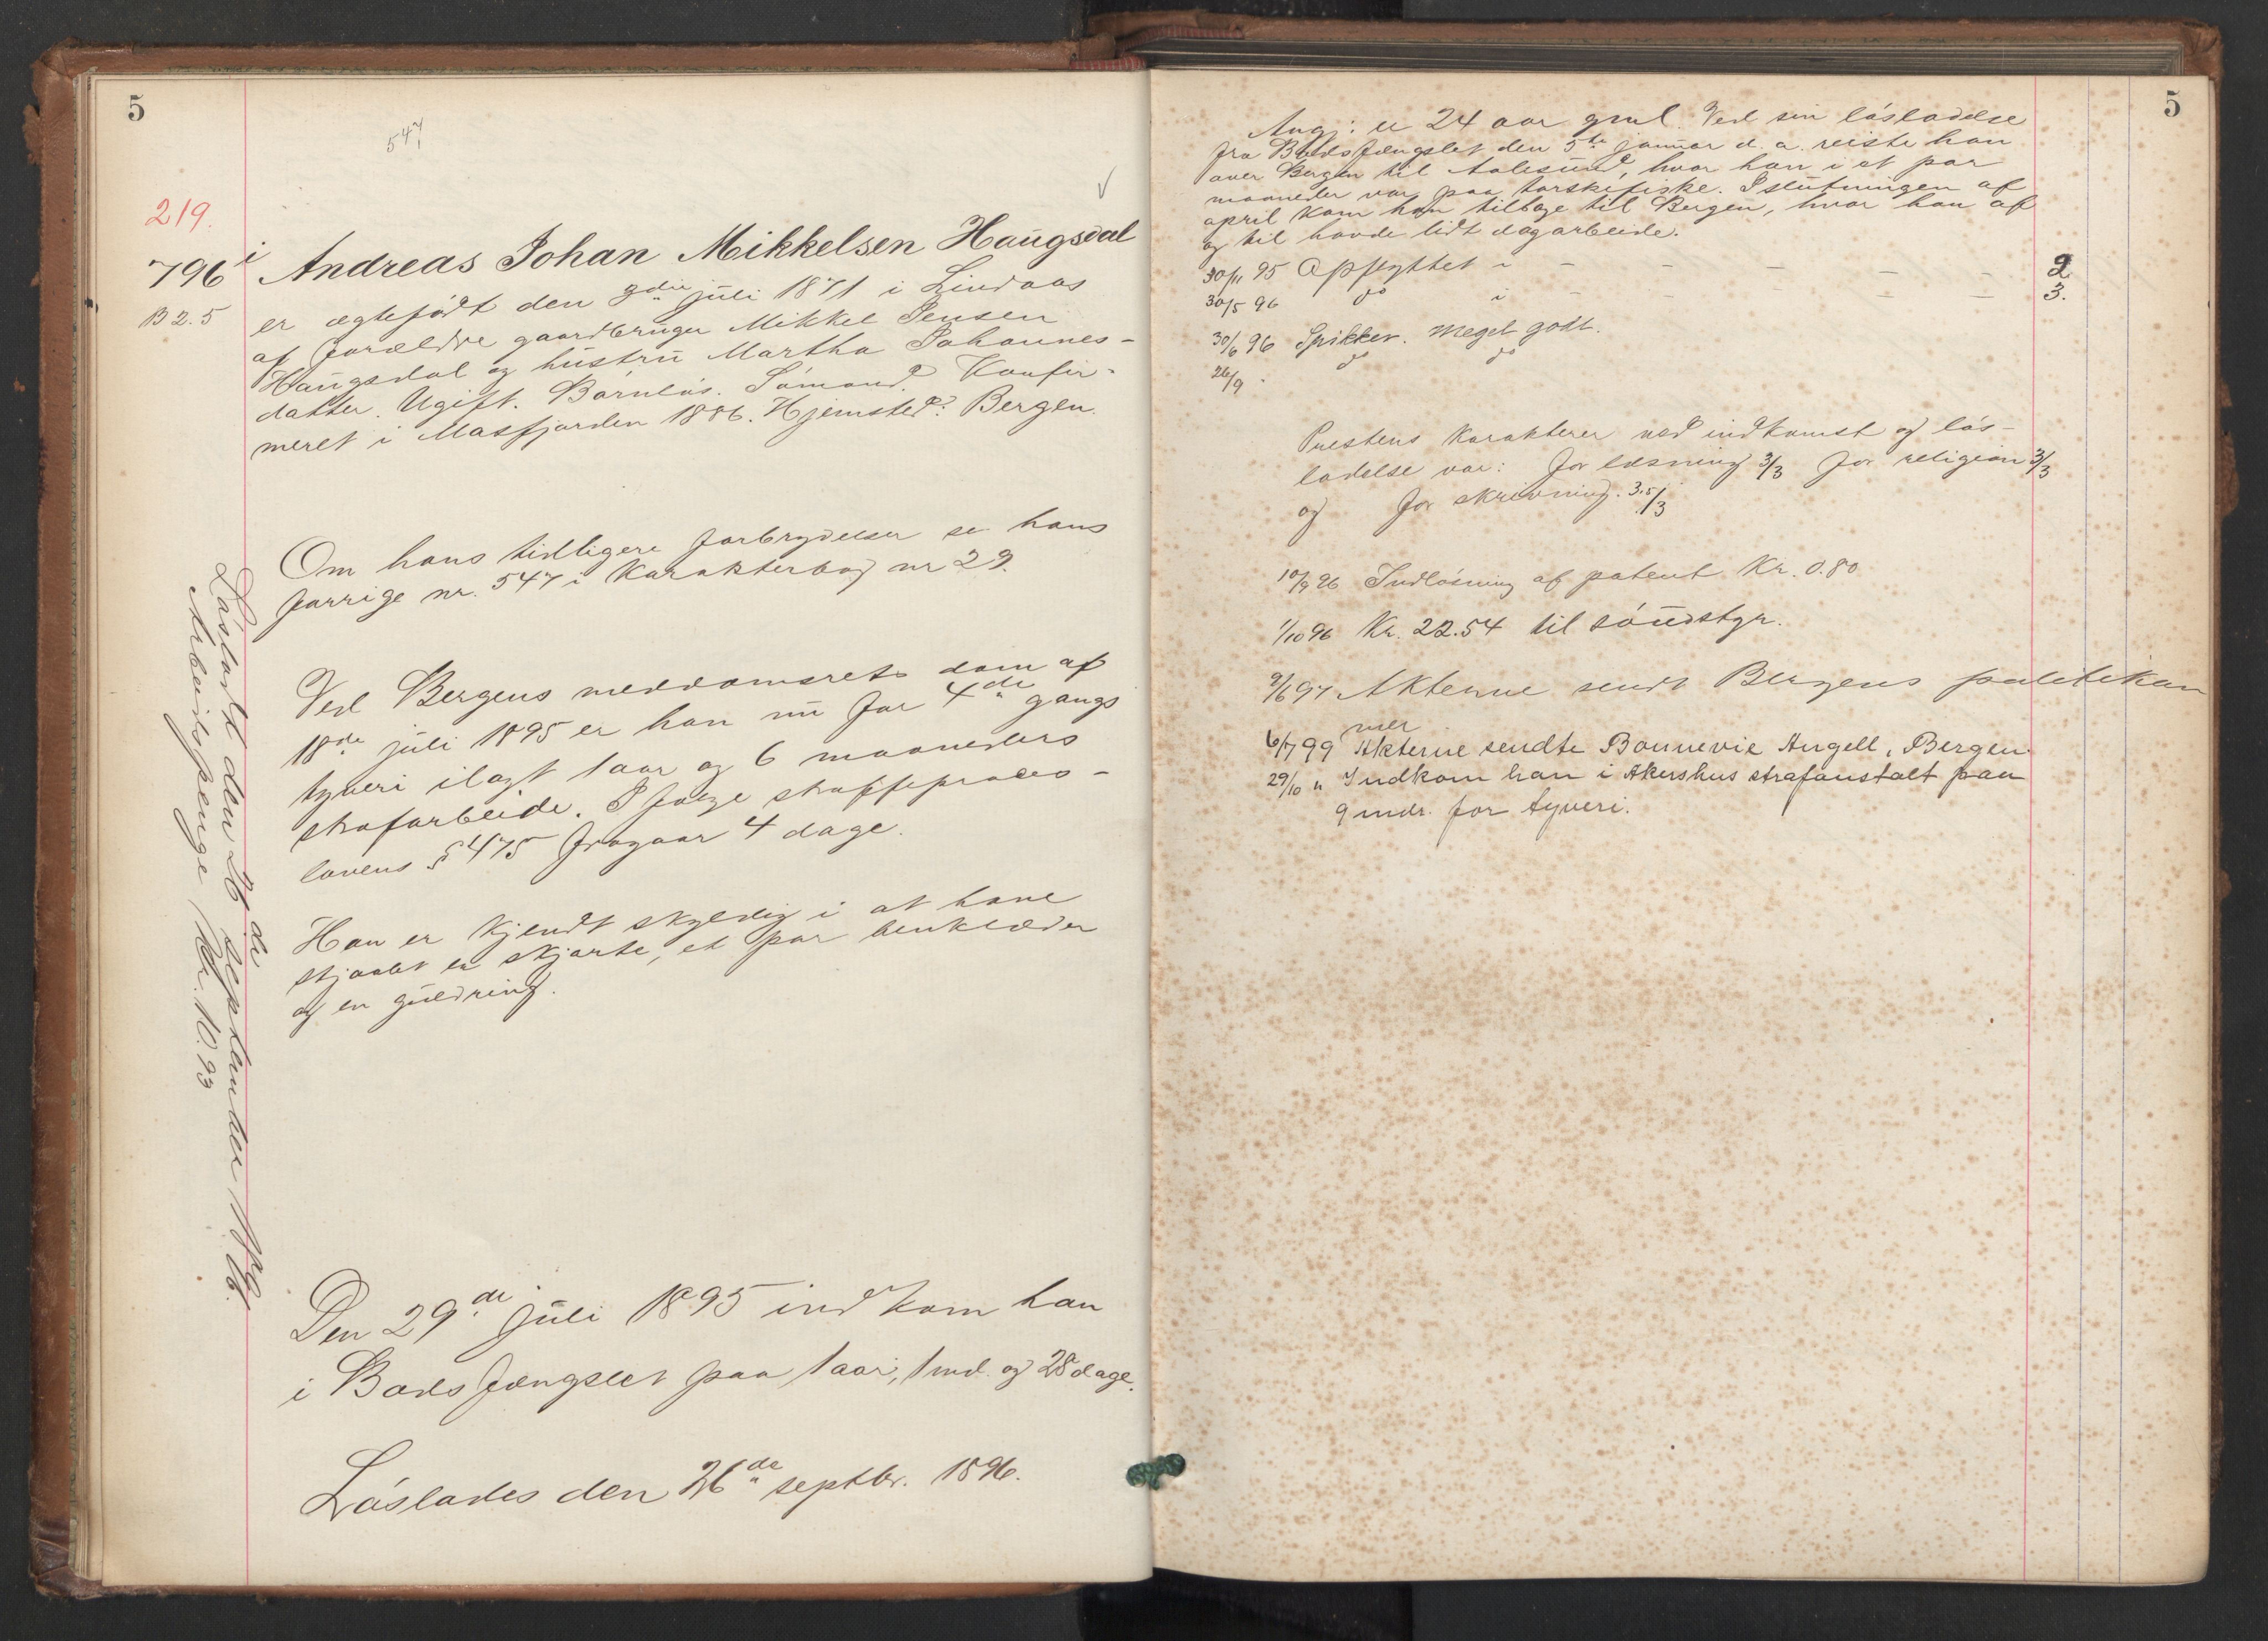 5
547
219.
796
B 2.5
i Andreas Johan Mikkelsen Haugsdal
er ægtefødt den 9de juli 1871 i Lindaas
af forældre gaardbruger Mikkel Jensen
Haugsdal og hustru Martha Johannes-
datter. Ugift. Barnløs. Sømand. Konfir-
meret i Masfjorden 1886. Hjemsted: Bergen.
Om hans tidligere forbrydelser se hans
forrige nr. 547 i Karakterbog nr 29.
Ved Bergens meddomsrets dom af
18de juli 1895 er han nu for 4de gangs
tyveri ilagt 1 aar og 6 maaneders
strafarbeide. I følge straffeproces-
lovens § 475 fragaar 4 dage.
Han er kjendt skyldig i at have
stjaalet en skjorte, et par benklæder
og en guldring.
Den 29de juli 1895 indkom han
i Bodsfængslet paa 1 aar, 1 md. og 28 dage.
Løslades den 26de septbr. 1896.
Løsladt den 26de september 1896.
Arbeidspenge Kr. 10.93
5
Angj: er 24 aar gml. Ved sin løsladelse
fra Bodsfængslet den 5te januar d. a. reiste han
over Bergen til Aalesund, hvor han i et par
maaneder var paa torskefiske. I slutningen af
april kom han tilbage til Bergen, hvor han af
og til havde lidt dagarbeide.
30/11 95 Opflyttet i - - - - - 2
30/5 96 do i - - - - - 3.
30/6 96 Spikker. meget godt.
26/9 - do do
Prestens karakterer ved indkomst og løs-
ladelse var: for læsning 3/3 for religion 3/3
og for skrivning 3,5/3
10/9 96 Indløsning af patent Kr. 0.80
1/10 96 Kr. 22.54 til søndstyr.
9/6 97 Akterne sendt Bergens politikam
mer
6/7 99 Akterne sendte Bonnevie Angell, Bergen.
29/10 " Indkom han i Akershus strafanstalt paa
9 mdr. for tyveri.